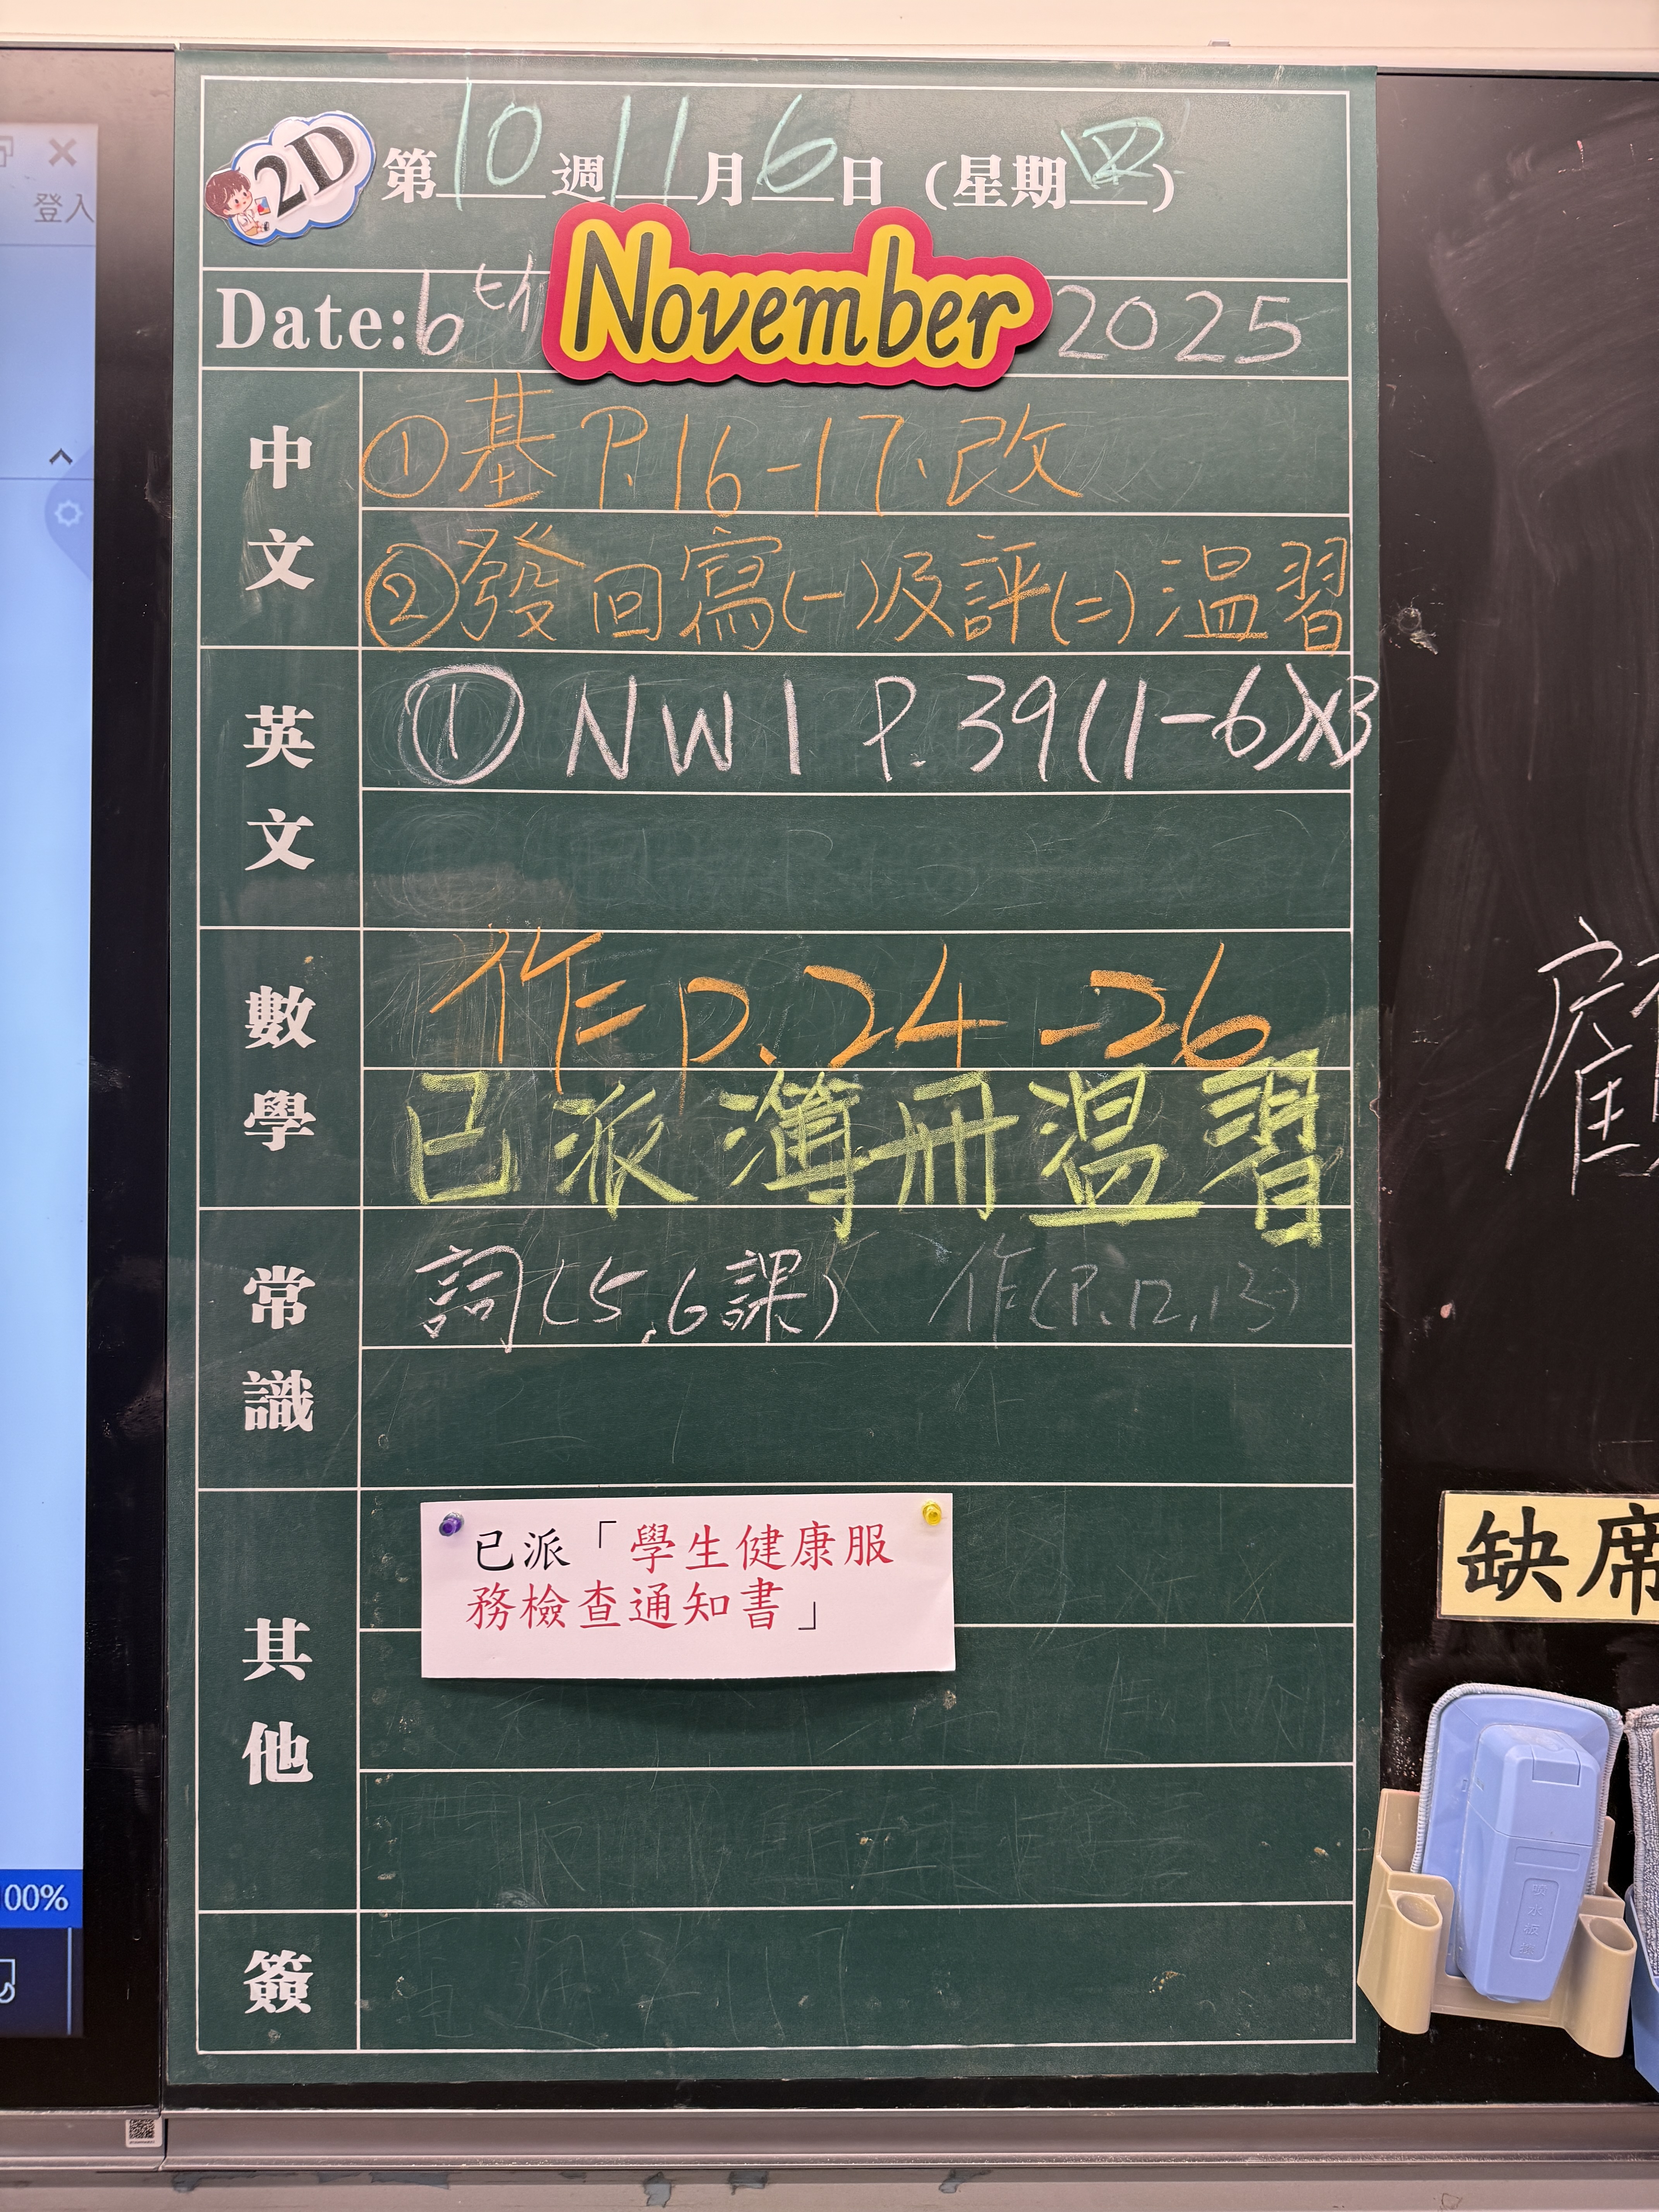 登入
00%
2D 第10週11月6日(星期四)
Date: 6th November 2025
中文
①基 P.16-17.改
②發回寫(一)及評(二)溫習
英文
① NW1 P.39(1-6)X3
數學
作 p.24-26
已派簿冊溫習
常識
詞(5,6課) 作(P.12,13)
其他
已派「學生健康服
務檢查通知書」
簽
缺席